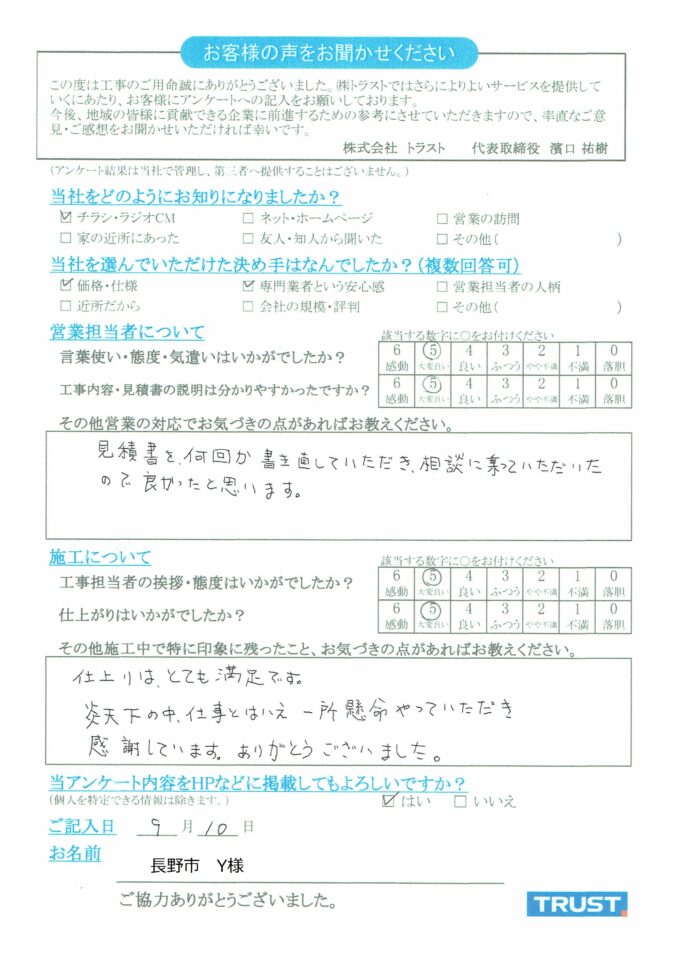 お客様の声をお聞かせください
この度は工事のご用命誠にありがとうございました。㈱トラストではさらによりよいサービスを提供して
いくにあたり、お客様にアンケートへの記入をお願いしております。
今後、地域の皆様に貢献できる企業に前進するための参考にさせていただきますので、率直なご意
見・ご感想をお聞かせいただければ幸いです。
株式会社 トラスト 代表取締役 濱口 祐樹
(アンケート結果は当社で管理し、第三者へ提供することはございません。)
当社をどのようにお知りになりましたか？
☑ チラシ・ラジオCM □ ネット・ホームページ □ 営業の訪問
□ 家の近所にあった □ 友人・知人から聞いた □ その他( )
当社を選んでいただけた決め手はなんでしたか？(複数回答可)
☑ 価格・仕様 ☑ 専門業者という安心感 □ 営業担当者の人柄
□ 近所だから □ 会社の規模・評判 □ その他( )
営業担当者について 該当する数字に○をお付けください
言葉使い・態度・気遣いはいかがでしたか？ 6 ⑤ 4 3 2 1 0
感動 大変良い 良い ふつう やや不満 不満 落胆
工事内容・見積書の説明は分かりやすかったですか？ 6 ⑤ 4 3 2 1 0
感動 大変良い 良い ふつう やや不満 不満 落胆
その他営業の対応でお気づきの点があればお教えください。
見積書を、何回か書き直していただき、相談に乗っていただいた
ので良かったと思います。
施工について 該当する数字に○をお付けください
工事担当者の挨拶・態度はいかがでしたか？ 6 ⑤ 4 3 2 1 0
感動 大変良い 良い ふつう やや不満 不満 落胆
仕上がりはいかがでしたか？ 6 ⑤ 4 3 2 1 0
感動 大変良い 良い ふつう やや不満 不満 落胆
その他施工中で特に印象に残ったこと、お気づきの点があればお教えください。
仕上りは、とても満足です。
炎天下の中、仕事とはいえ一所懸命やっていただき
感謝しています。ありがとうございました。
当アンケート内容をHPなどに掲載してもよろしいですか？
(個人を特定できる情報は除きます。) ☑ はい □ いいえ
ご記入日 9 月 10 日
お名前 長野市 Y様
ご協力ありがとうございました。
TRUST